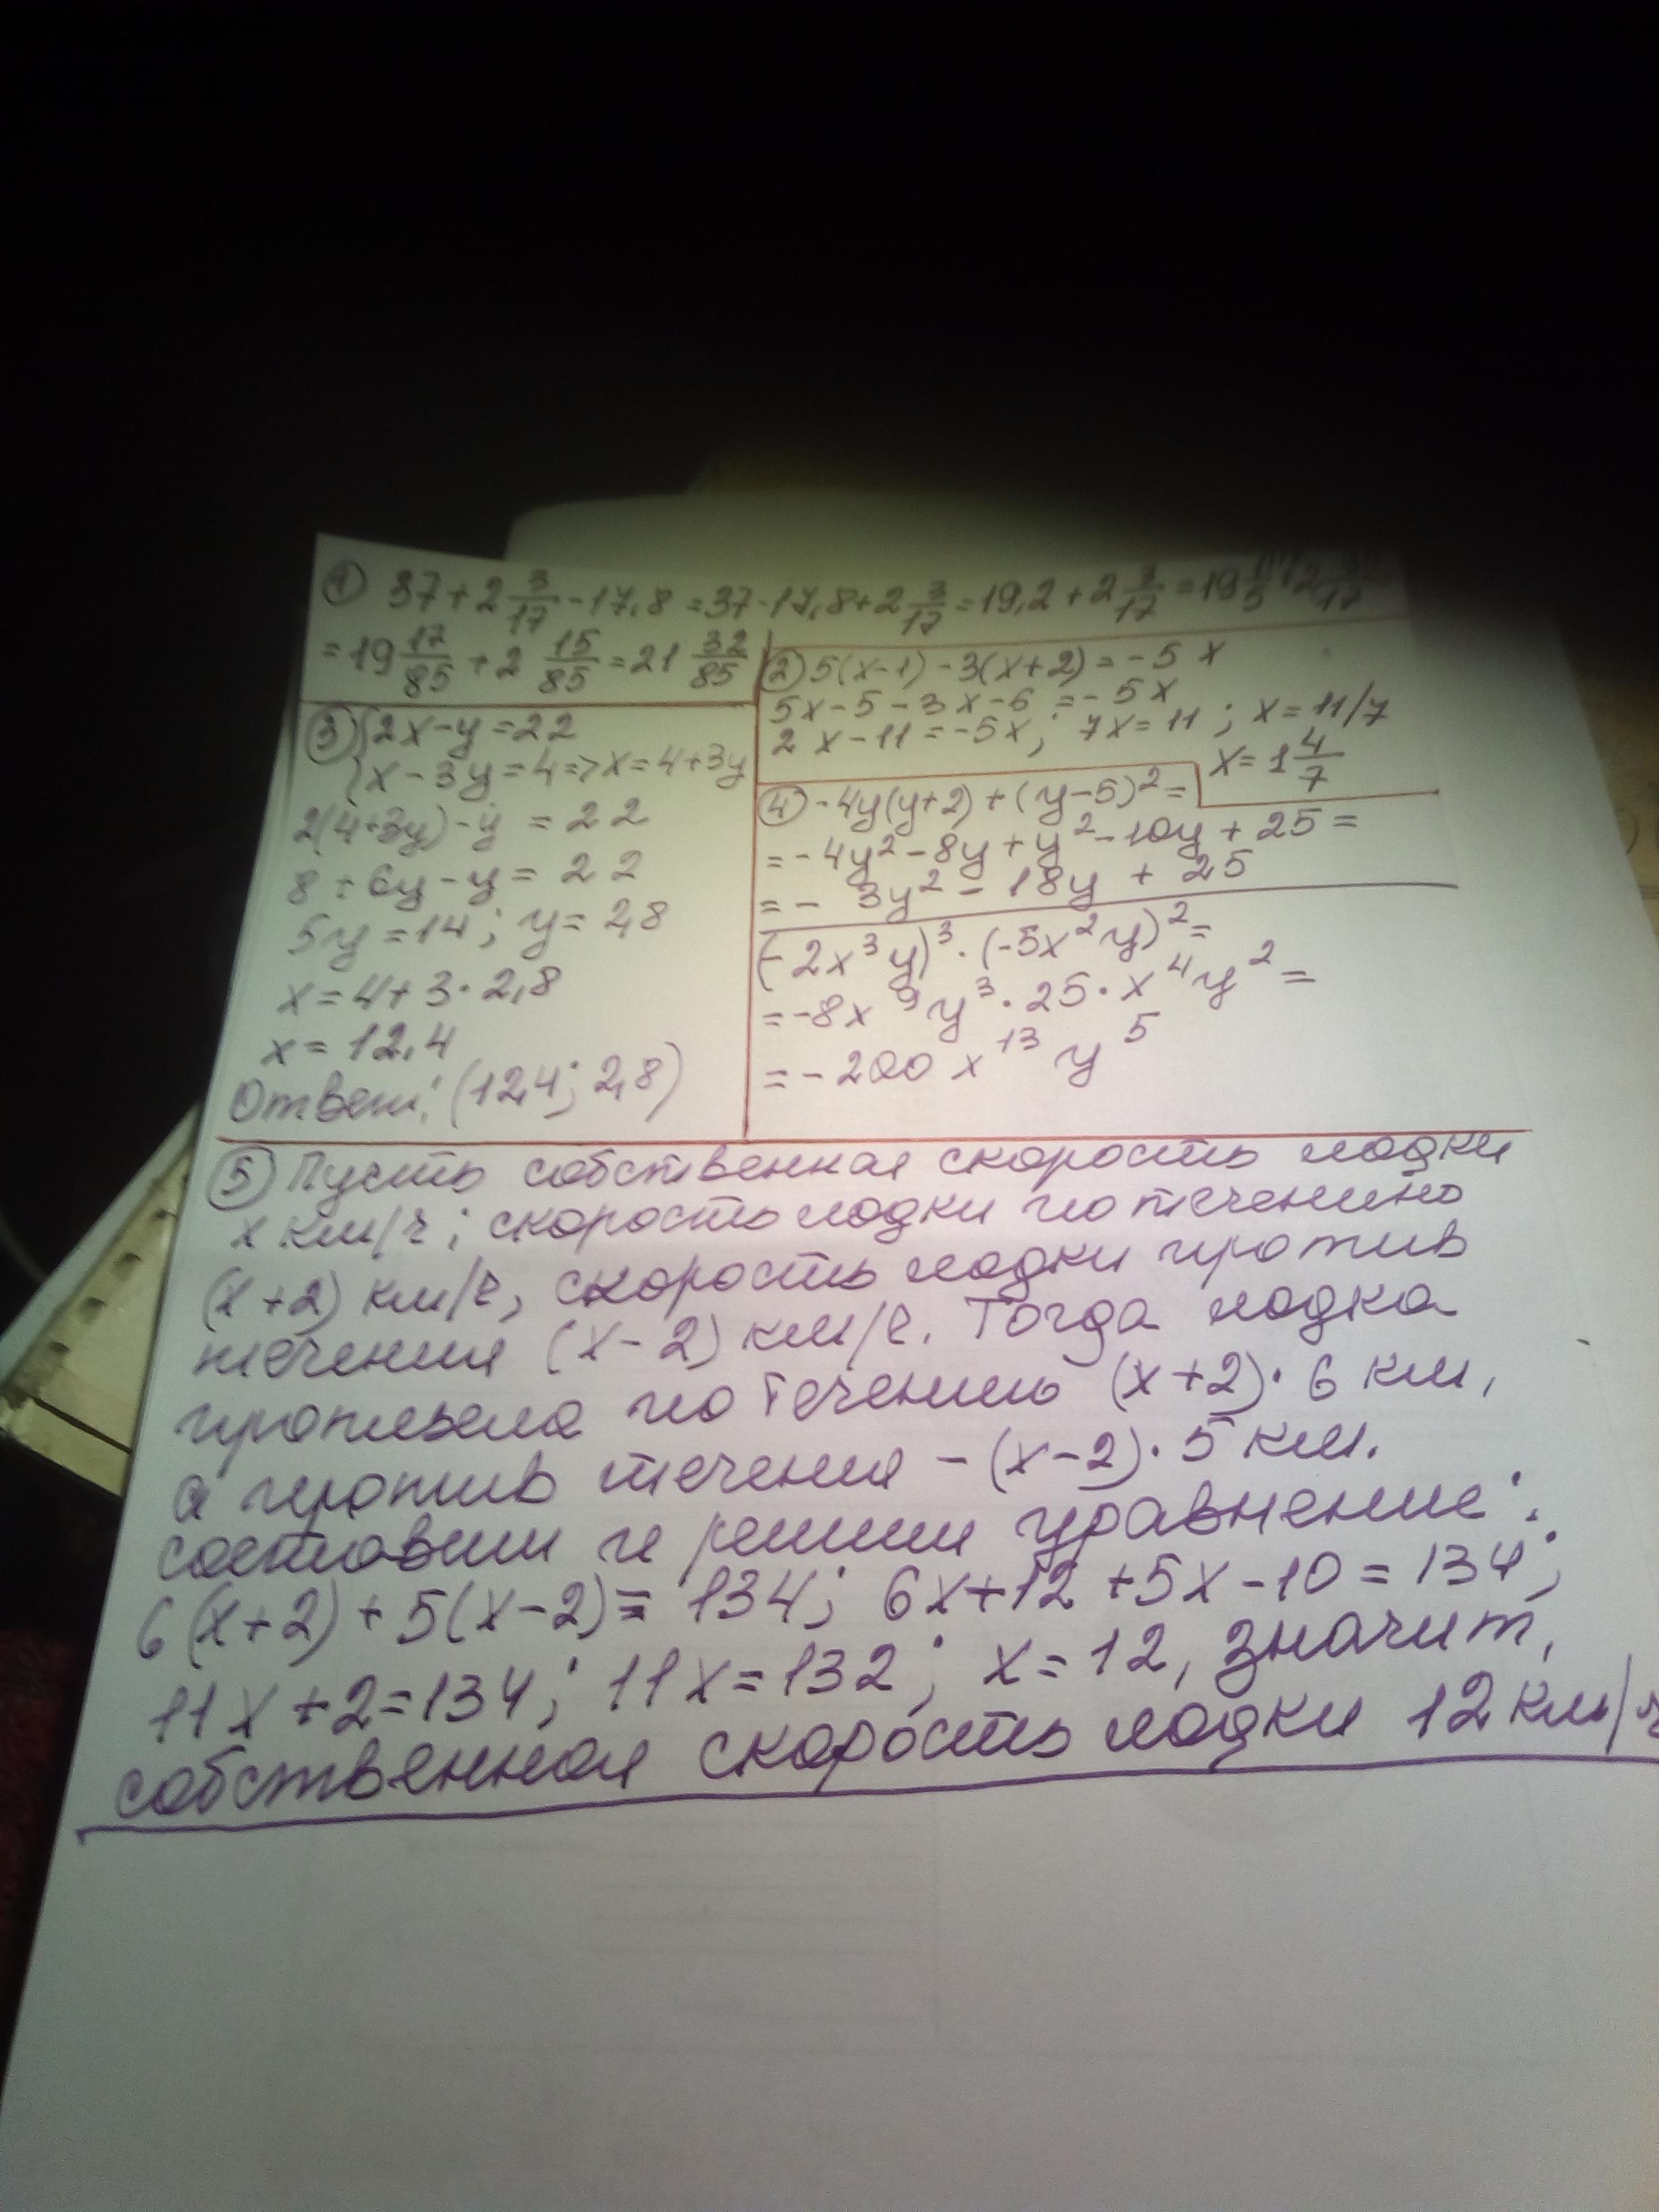 ① 37 + 2 3/17 - 17,8 = 37 - 17,8 + 2 3/17 = 19,2 + 2 3/17 = 19 1/5 + 2 3/17
= 19 17/85 + 2 15/85 = 21 32/85
② 5(x-1) - 3(x+2) = -5x
5x - 5 - 3x - 6 = -5x
2x - 11 = -5x; 7x = 11; x = 11/7
x = 1 4/7
③ {2x - y = 22
{x - 3y = 4 => x = 4+3y
2(4+3y) - y = 22
8 + 6y - y = 22
5y = 14; y = 2,8
x = 4 + 3·2,8
x = 12,4
Ответ: (12,4; 2,8)
④ -4y(y+2) + (y-5)² =
= -4y² - 8y + y² - 10y + 25 =
= - 3y² - 18y + 25
(-2x³y)³ · (-5x²y)² =
= -8x⁹y³ · 25 · x⁴y² =
= -200 x¹³ y⁵
⑤ Пусть собственная скорость лодки
x км/ч; скорость лодки по течению
(x+2) км/ч, скорость лодки против
течения (x-2) км/ч. Тогда лодка
проплыла по течению (x+2)· 6 км,
а против течения - (x-2)· 5 км.
составим и решим уравнение:
6(x+2) + 5(x-2) = 134; 6x+12 + 5x - 10 = 134;
11x + 2 = 134; 11x = 132; x = 12, значит,
собственная скорость лодки 12 км/ч